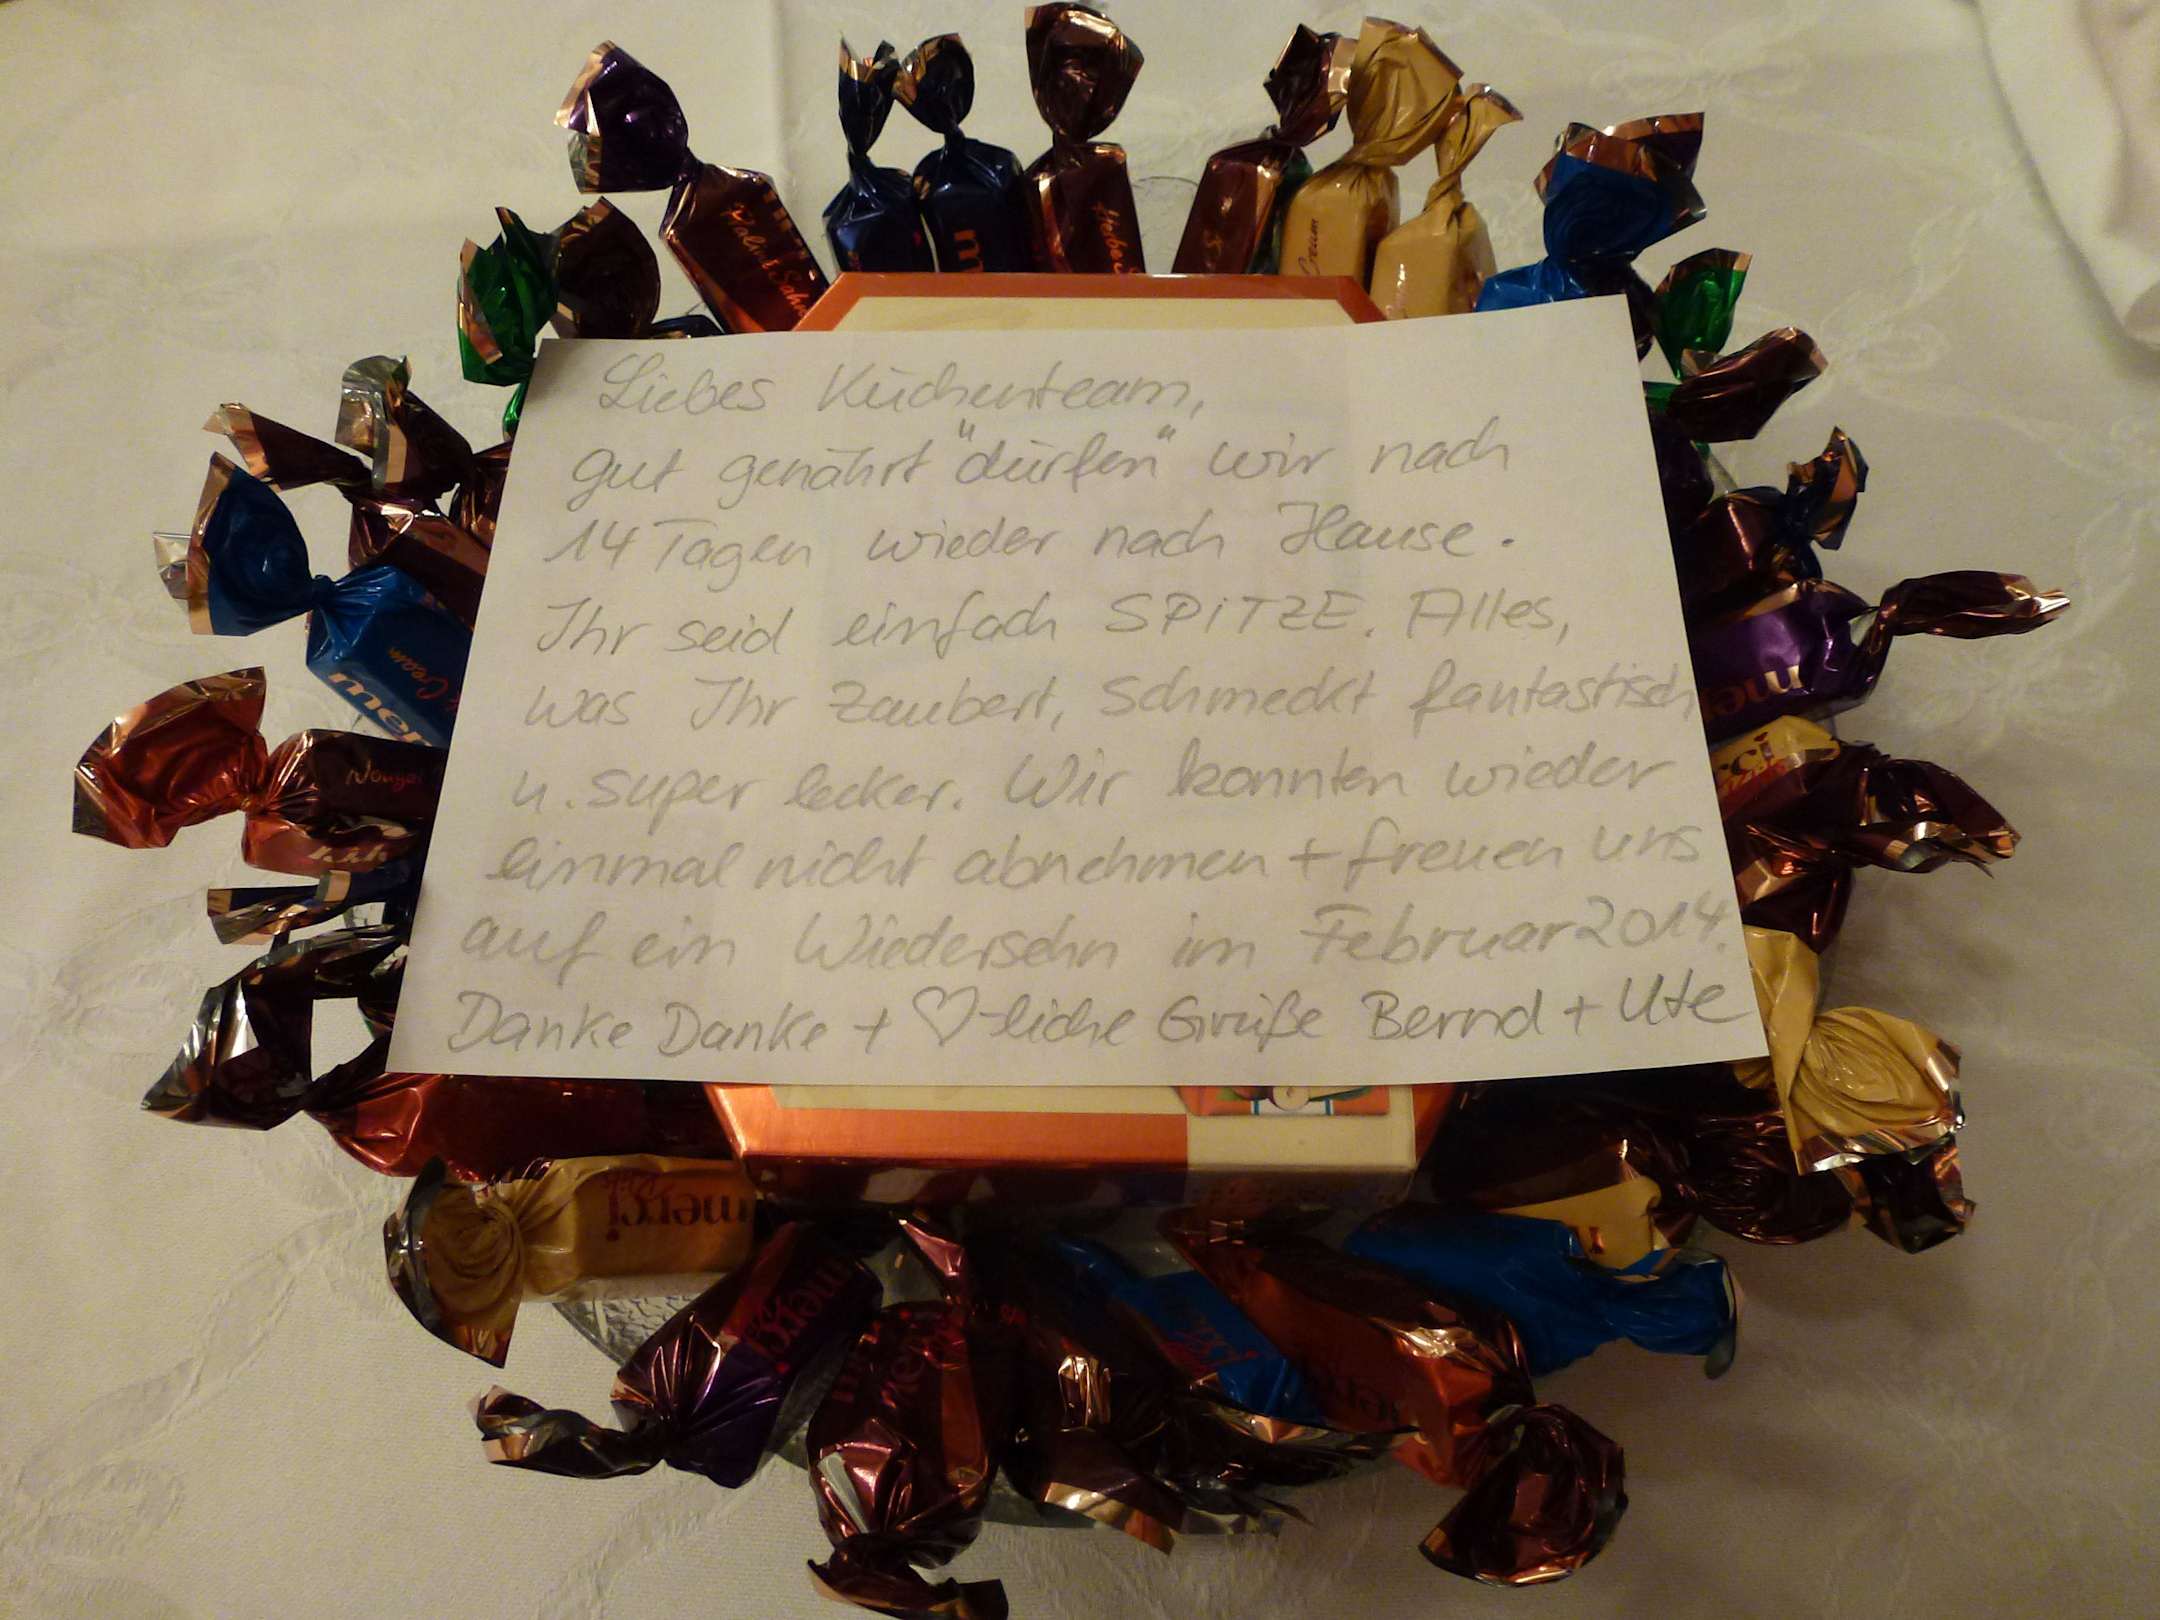 Liebes Küchenteam,
gut genährt "dürfen" wir nach
14 Tagen wieder nach Hause.
Ihr seid einfach SPITZE. Alles,
was Ihr zaubert, schmeckt fantastisch
u. super lecker. Wir konnten wieder
einmal nicht abnehmen + freuen uns
auf ein Wiedersehn im Februar 2014.
Danke Danke + ♡-liche Grüße Bernd + Ute
Cream
Cream
Nougat
merci
merci